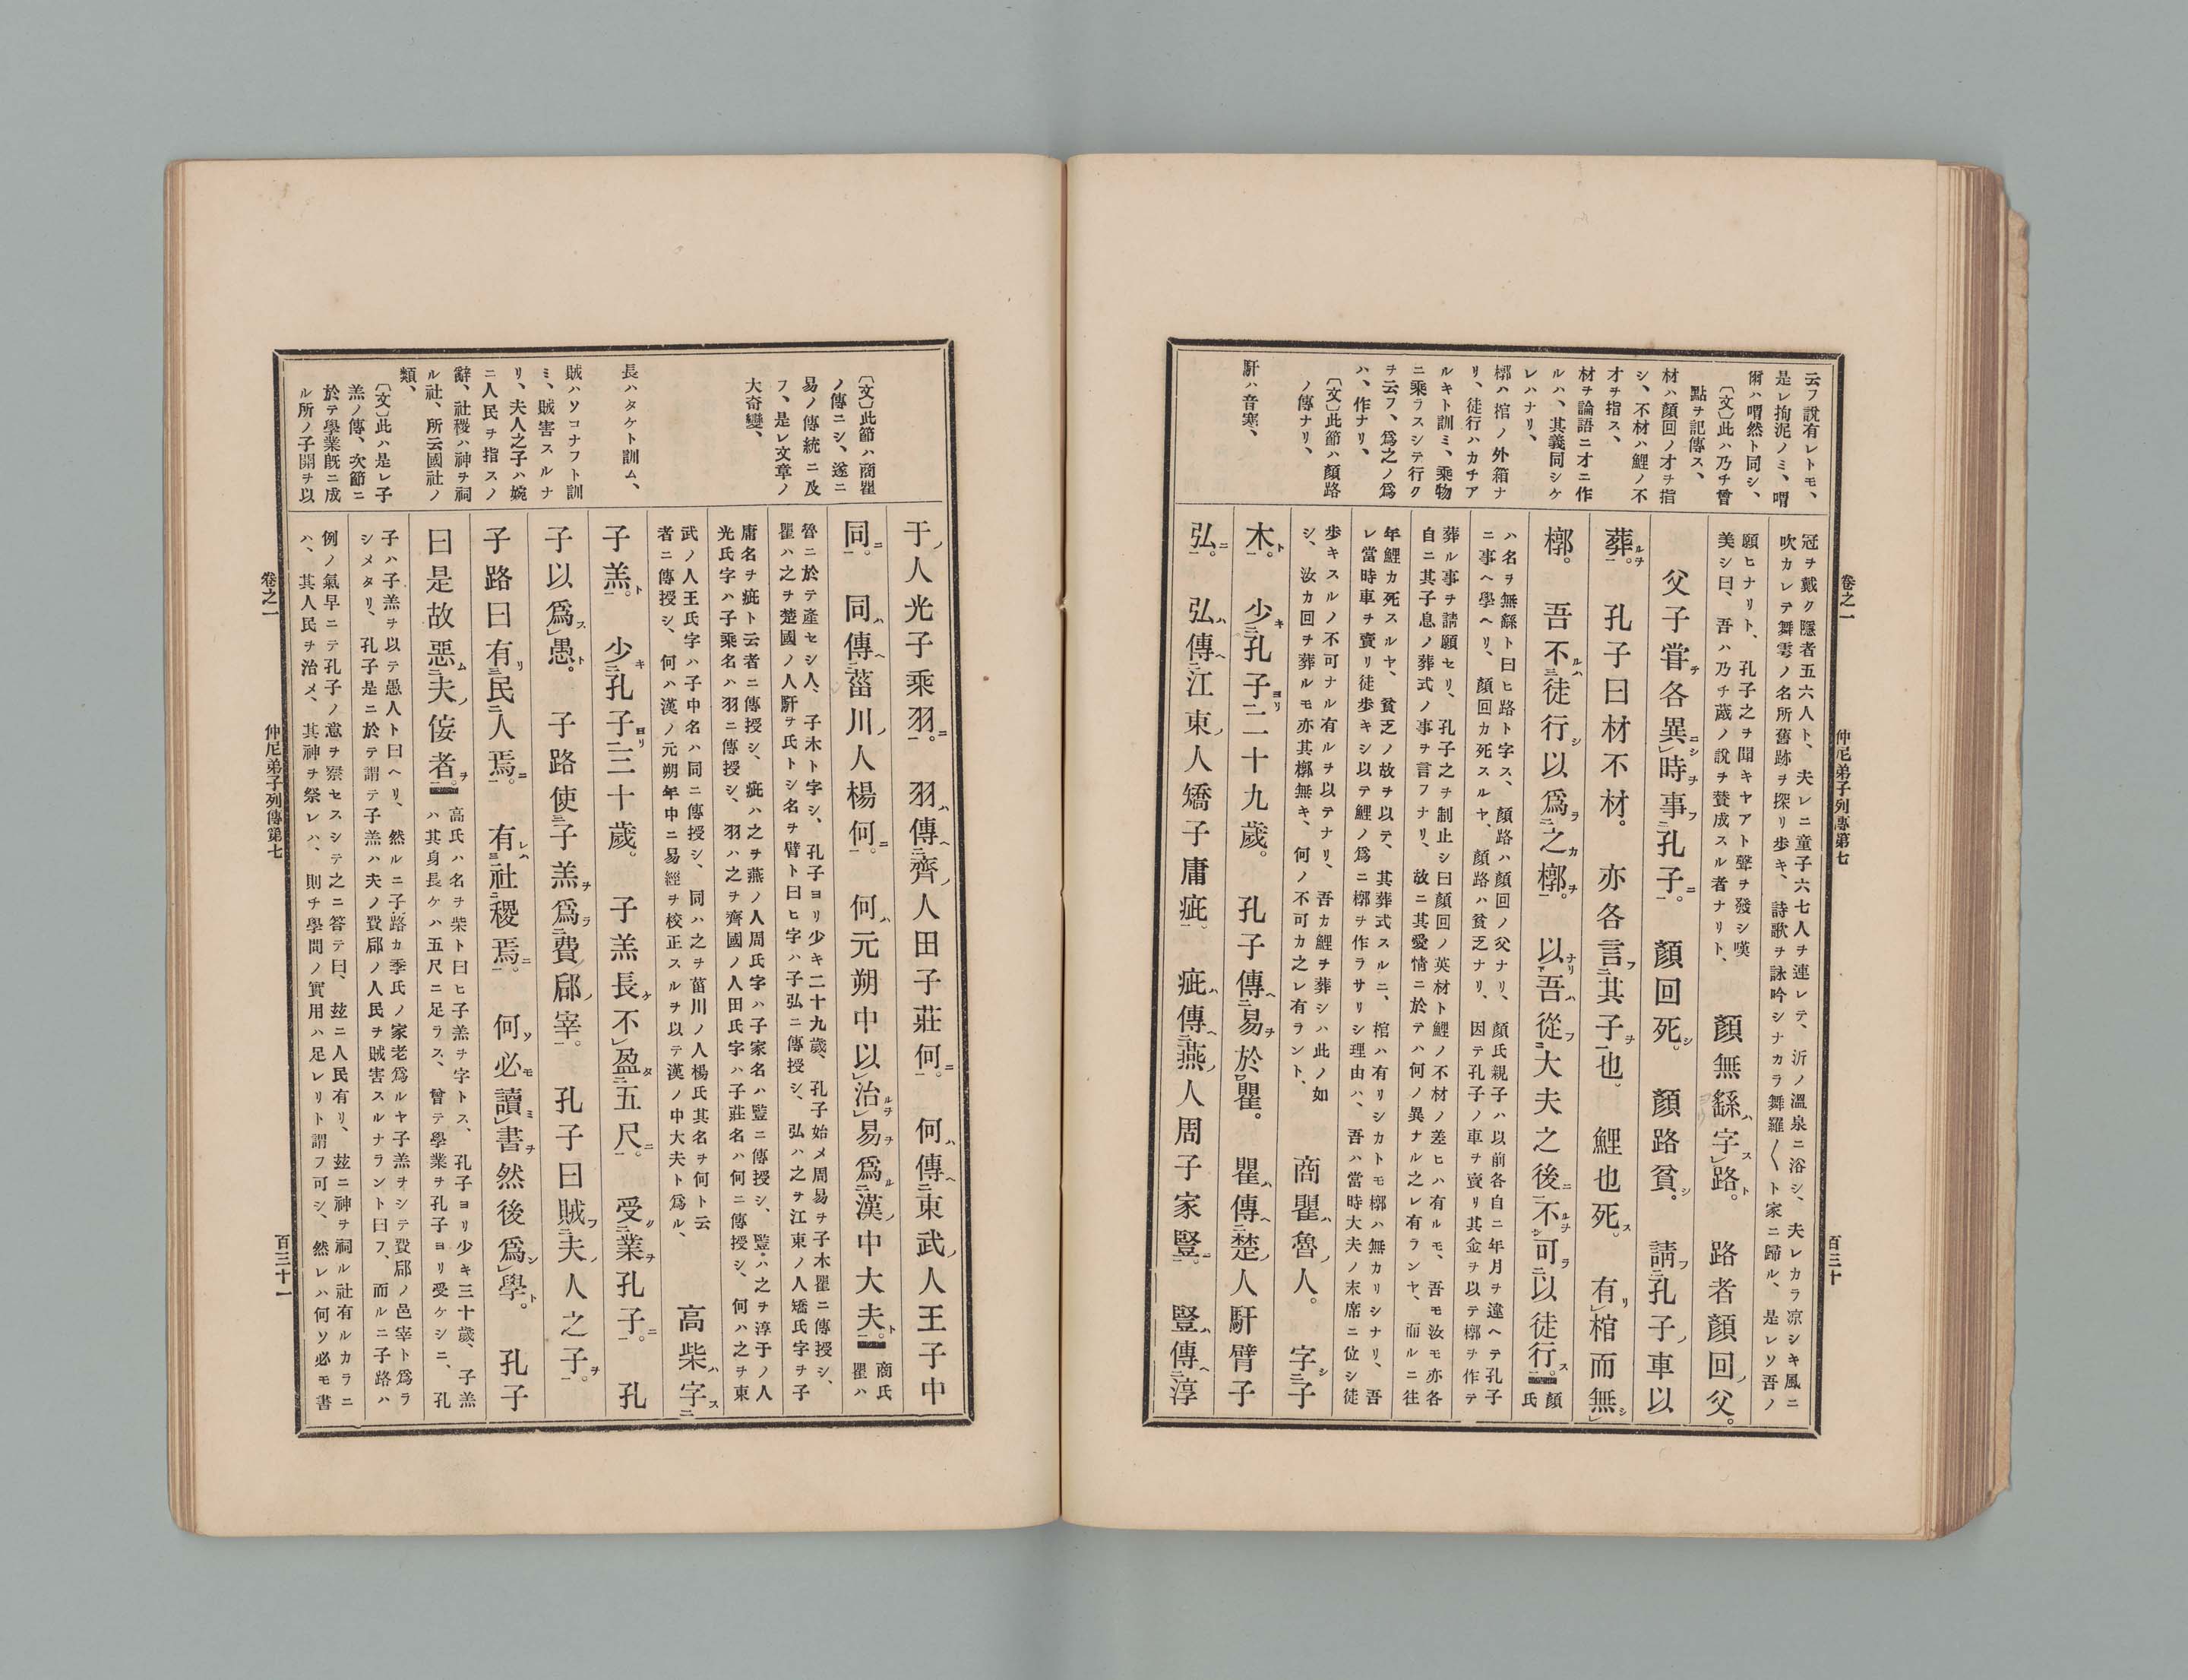 卷之一
仲尼弟子列傳第七
百三十
云フ說有レトモ、
是レ拘泥ノミ、喟
爾ハ喟然ト同シ、
〔文〕此ハ乃チ曾
點ヲ記傳ス、
材ハ顏回ノ才ヲ指
シ、不材ハ鯉ノ不
才ヲ指ス、
材ヲ論語ニ才ニ作
ルハ、其義同シケ
レハナリ、
槨ハ棺ノ外箱ナ
リ、徒行ハカチア
ルキト訓ミ、乘物
ニ乘ラスシテ行ク
ヲ云フ、爲之ノ爲
ハ、作ナリ、
〔文〕此節ハ顏路
ノ傳ナリ、
馯ハ音寒、
冠ヲ戴ク隱者五六人ト、夫レニ童子六七人ヲ連レテ、沂ノ溫泉ニ浴シ、夫レカラ凉シキ風ニ
吹カレテ舞雩ノ名所舊跡ヲ探リ步キ、詩歌ヲ詠吟シナカラ舞羅〱ト家ニ歸ル、是レソ吾ノ
願ヒナリト、孔子之ヲ聞キヤアト聲ヲ發シ嘆
美シ曰、吾ハ乃チ蒧ノ說ヲ賛成スル者ナリト、
顏無繇ハ字スレ路ト。路者顏回ノ父。
父子嘗テ各異ニシレ時ヲ事フ二孔子ニ一。顏回死シ。顏路貧シ。請フ二孔子ノ車以
葬ルヲ一。孔子曰材不材。亦各言フ二其子ヲ一也。鯉也死ス。有リレ棺而無シレ
槨。吾不ルハ三徒行シ以爲ラ二之カ槨ヲ一。以ナリ下吾ハ從フ二大夫之後ニ一不ルヲ上シ可ラ二以徒行ス一。
顏氏
ハ名ヲ無繇ト曰ヒ路ト字ス、顏路ハ顏回ノ父ナリ、顏氏親子ハ以前各自ニ年月ヲ違ヘテ孔子
ニ事ヘ學ヘリ、顏回カ死スルヤ、顏路ハ貧乏ナリ、因テ孔子ノ車ヲ賣リ其金ヲ以テ槨ヲ作テ
葬ル事ヲ請願セリ、孔子之ヲ制止シ曰顏回ノ英材ト鯉ノ不材ノ差ヒハ有ルモ、吾モ汝モ亦各
自ニ其子息ノ葬式ノ事ヲ言フナリ、故ニ其愛情ニ於テハ何ノ異ナル之レ有ランヤ、而ルニ往
年鯉カ死スルヤ、貧乏ノ故ヲ以テ、其葬式スルニ、棺ハ有リシカトモ槨ハ無カリシナリ、吾
レ當時車ヲ賣リ徒步キシ以テ鯉ノ爲ニ槨ヲ作ラサリシ理由ハ、吾ハ當時大夫ノ末席ニ位シ徒
步キスルノ不可ナル有ルヲ以テナリ、吾カ鯉ヲ葬シハ此ノ如
シ、汝カ回ヲ葬ルモ亦其槨無キ、何ノ不可カ之レ有ラント、
商瞿ハ魯ノ人。字シ二子
木ト一。少キ二孔子ヨリ一二十九歲。孔子傳ヘ二易ヲ於瞿一。瞿ハ傳ヘ二楚ノ人馯臂子
弘ニ一。弘ハ傳ヘ二江東ノ人矯子庸疵一。疵ハ傳ヘ二燕ノ人周子家豎ニ一。豎ハ傳ヘ二淳
〔文〕此節ハ商瞿
ノ傳ニシ、遂ニ
易ノ傳統ニ及
フ、是レ文章ノ
大奇變、
長ハタケト訓ム、
賊ハソコナフト訓
ミ、賊害スルナ
リ、夫人之子ハ婉
ニ人民ヲ指スノ
辭、社稷ハ神ヲ祠
ル社、所云國社ノ
類、
〔文〕此ハ是レ子
羔ノ傳、次節ニ
於テ學業既ニ成
ル所ノ子開ヲ以
于ノ人光子乘羽ニ一。羽ハ傳ヘ二齊ノ人田子莊何ニ一。何ハ傳ヘ二東武ノ人王子中
同ニ一。同ハ傳ヘ二菑川ノ人楊何ニ一。何ハ元朔中以レ治ルヲレ易ヲ爲ル二漢ノ中大夫ト一。
商氏
瞿ハ
魯ニ於テ產セシ人、子木ト字シ、孔子ヨリ少キ二十九歲、孔子始メ周易ヲ子木瞿ニ傳授シ、
瞿ハ之ヲ楚國ノ人馯ヲ氏トシ名ヲ臂ト曰ヒ字ハ子弘ニ傳授シ、弘ハ之ヲ江東ノ人矯氏字ヲ子
庸名ヲ疵ト云者ニ傳授シ、疵ハ之ヲ燕ノ人周氏字ハ子家名ハ豎ニ傳授シ、豎ハ之ヲ淳于ノ人
光氏字ハ子乘名ハ羽ニ傳授シ、羽ハ之ヲ齊國ノ人田氏字ハ子莊名ハ何ニ傳授シ、何ハ之ヲ東
武ノ人王氏字ハ子中名ハ同ニ傳授シ、同ハ之ヲ菑川ノ人楊氏其名ヲ何ト云
者ニ傳授シ、何ハ漢ノ元朔年中ニ易經ヲ校正スルヲ以テ漢ノ中大夫ト爲ル、
高柴ハ字ス二
子羔ト一。少キ二孔子ヨリ一三十歲。子羔長ケ不レ盈タ二五尺ニ一。受ケ二業ヲ孔子ニ一。孔
子以爲スレ愚ト。子路使三子羔ヲ爲ラ二費郈ノ宰一。孔子曰賊フ二夫ノ人之子ヲ一。
子路曰有リ二民人一焉ニ。有レハ二社稷一焉ニ。何ソ必モ讀ミレ書ヲ然後爲シレ學ト。孔子
曰是故惡ム二夫ノ佞者ヲ一。
高氏ハ名ヲ柴ト曰ヒ子羔ヲ字トス、孔子ヨリ少キ三十歲、子羔
ハ其身長ケハ五尺ニ足ラス、曾テ學業ヲ孔子ヨリ受ケシニ、孔
子ハ子羔ヲ以テ愚人ト曰ヘリ、然ルニ子路カ季氏ノ家老爲ルヤ子羔ヲシテ費郈ノ邑宰ト爲ラ
シメタリ、孔子是ニ於テ謂テ子羔ハ夫ノ費郈ノ人民ヲ賊害スルナラント曰フ、而ルニ子路ハ
例ノ氣早ニテ孔子ノ意ヲ察セスシテ之ニ答テ曰、玆ニ人民有リ、玆ニ神ヲ祠ル社有ルカラニ
ハ、其人民ヲ治メ、其神ヲ祭レハ、則チ學問ノ實用ハ足レリト謂フ可シ、然レハ何ソ必モ書
卷之一
仲尼弟子列傳第七
百三十一